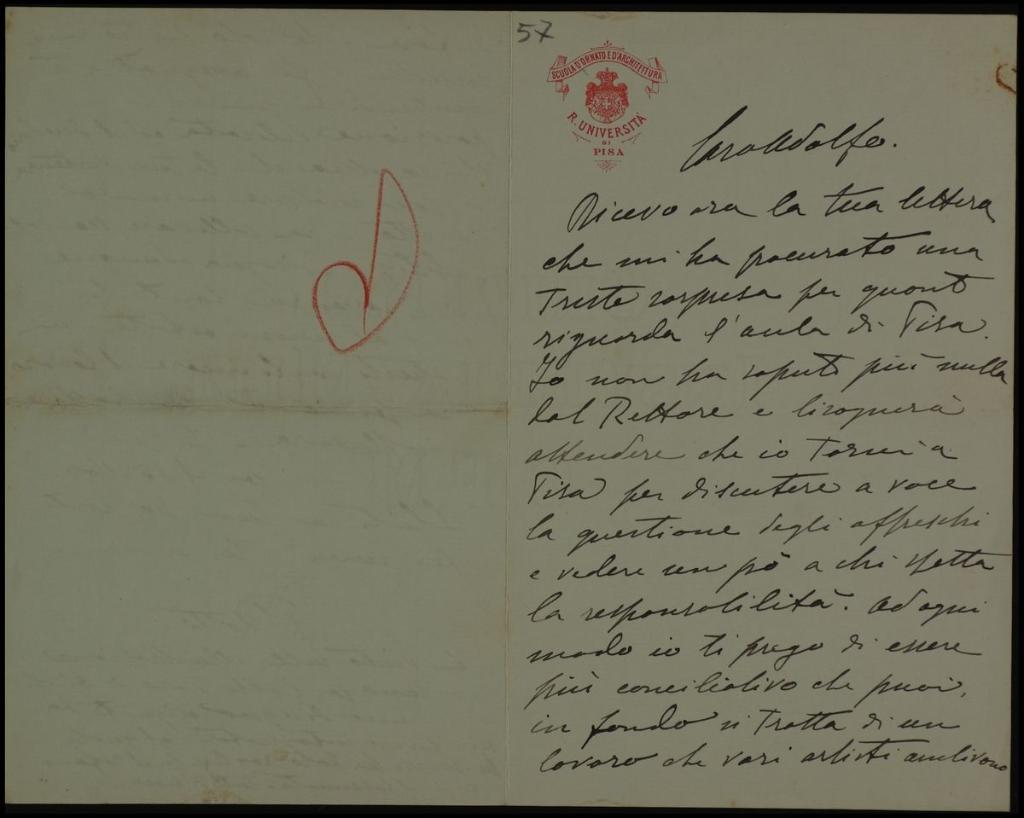 57
SCUOLA D'ORNATO E D'ARCHITETTURA
R. UNIVERSITÀ
DI
PISA
Caro Adolfo.
Ricevo ora la tua lettera
che mi ha procurato una
triste sorpresa per quanto
riguarda l'aula di Pisa.
Io non ho saputo più nulla
dal Rettore e bisognerà
attendere che io torni a
Pisa per discutere a voce
la questione degli affreschi
e vedere un pò a chi spetta
la responsabilità. Ad ogni
modo io ti prego di essere
più conciliativo che puoi,
in fondo si tratta di un
lavoro che vari artisti ambivano